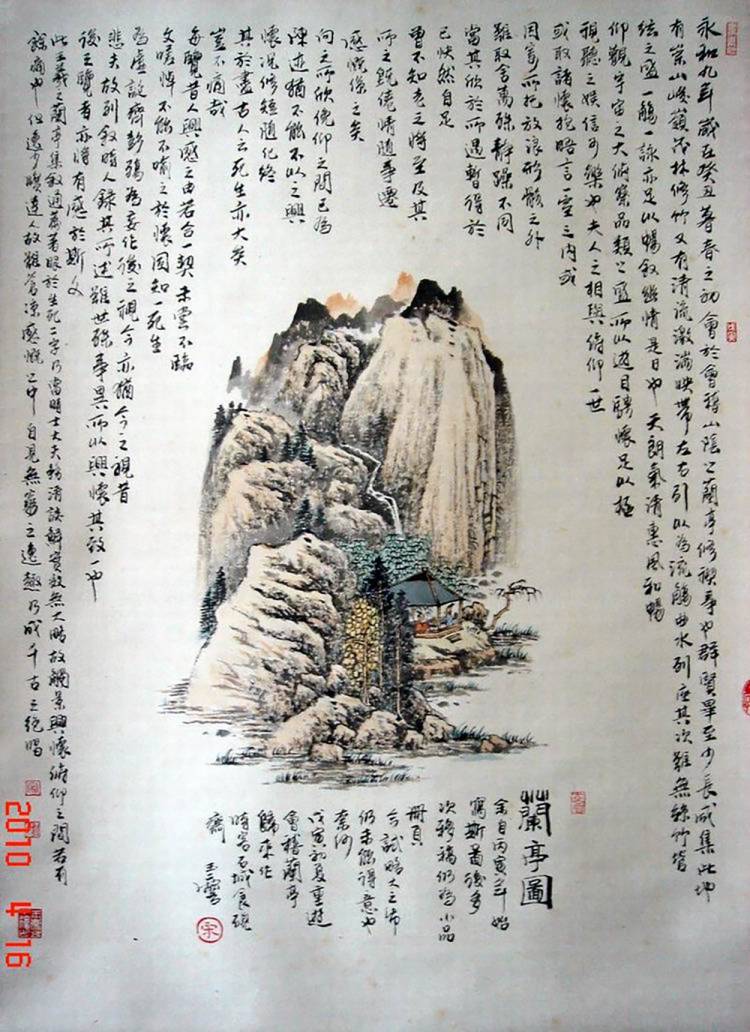 永和九年歲在癸丑暮春之初會於會稽山陰之蘭亭修禊事也群賢畢至少長咸集此地
有崇山峻嶺茂林修竹又有清流激湍映帶左右列以為流觴曲水列座其次雖無絲竹管
弦之盛一觴一詠亦足以暢敘幽情是日也天朗氣清惠風和暢
仰觀宇宙之大俯察品類之盛所以遊目騁懷足以極
視聽之娛信可樂也夫人之相與俯仰一世
或取諸懷抱晤言一室之內或
因寄所托放浪形骸之外
雖取舍萬殊靜躁不同
當其欣於所遇暫得於
己快然自足
曾不知老之將至及其
所之既倦情隨事遷
感慨係之矣
向之所欣俛仰之間已為
陳迹猶不能不以之興
懷況修短隨化終
其於盡古人云死生亦大矣
豈不痛哉
每覽昔人興感之由若合一契未雲不臨
文嗟悼不能不喻之於懷固知一死生
為虛誕齊彭殤為妄作後之視今亦猶今之視昔
悲夫故列敘時人錄其所述雖世殊事異所以興懷其致一也
後之覽者亦將有感於斯文
此王羲之蘭亭集敘通篇著眼於生死二字乃當時士大夫務清談鮮實效無大略故觸景興懷俯仰之間若有
餘痛也但逸少曠達人故雖蒼涼感慨之中自具無窮之逸趣乃成千古之絕唱
蘭亭圖
余自丙寅年始
寫斯圖後多
次移稿仍為小品
冊頁
今試略大之布
仍未能得意也
奈何
戊寅初夏重遊
會稽蘭亭
歸來作
時客石城食硯
齋
2010 4 16